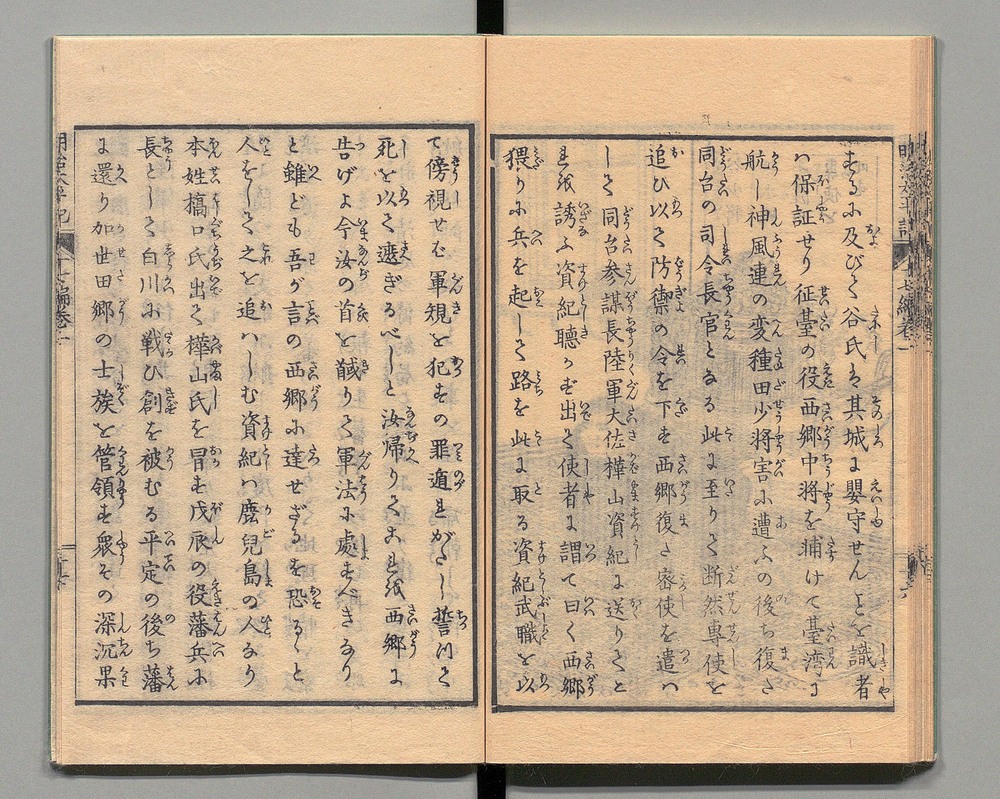 するに及びて谷氏は其城に嬰守せんとを識者
ハ保証せり征臺の役西郷中将を輔けて臺湾に
航し神風連の変種田少将害に遭ふの後ち復た
同台の司令長官となる此に至りて断然専使を
追ひ以て防禦の令を下す西郷復た密使を遣ハ
して同台参謀長陸軍大佐樺山資紀に送りてと
れを誘ふ資紀聴かず出て使者に謂て曰く西郷
猥りに兵を起して路を此に取る資紀武職を以
て傍視せむ軍規を犯すの罪遁れがたし誓つて
死を以て遮ぎるべしと汝帰りてこれを西郷に
告げよ今汝の首を馘りて軍法に處すべきなり
と雖ども吾が言の西郷に達せざるを恐るゝと
人をして之を追ハしむ資紀ハ鹿兒島の人なり
本姓槗口氏出て樺山氏を冒す戊辰の役藩兵に
長として白川に戦ひ創を被むる平定の後ち藩
に還り加世田郷の士族を管領す衆その深沉果